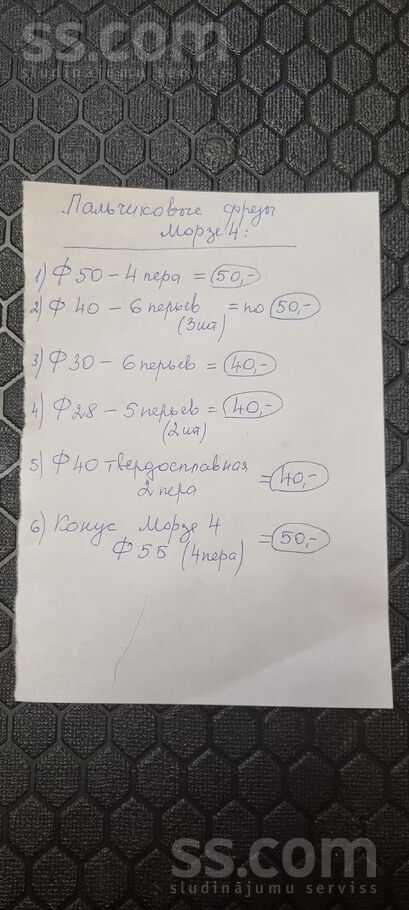 ss.com
sludinājumu serviss
Пальчиковые фрезы
Морзе 4:
1) Ф 50 – 4 пера = 50,-
2) Ф 40 – 6 перьев = по 50,-
(3 шт)
3) Ф 30 – 6 перьев = 40,-
4) Ф 28 – 5 перьев = 40,-
(2 шт)
5) Ф 40 твердосплавная
2 пера = 40,-
6) Конус Морзе 4
Ф 55 (4 пера) = 50,-
ss.com
sludinājumu serviss